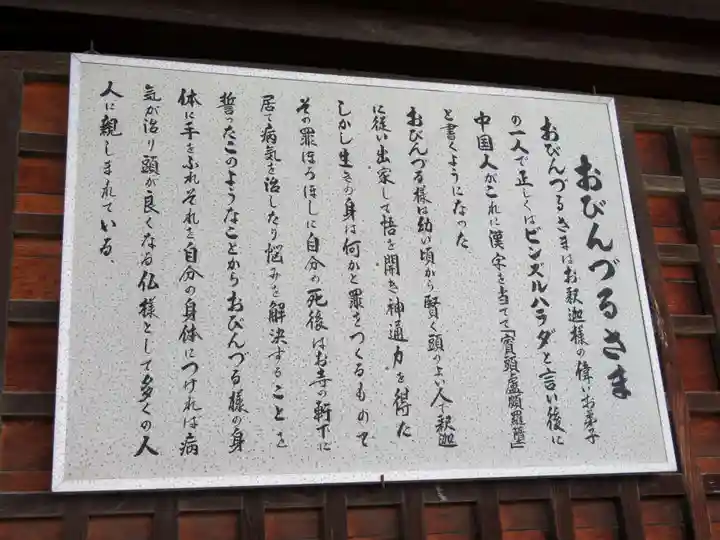 おびんづるさま
おびんづるさまはお釈迦様の偉いお弟子
の一人で正しくはビンズルハラダと言い後に
中国人がこれに漢字を当てて「賓頭盧頗羅堕」
と書くようになった
おびんづる様は幼い頃から賢く頭のよい人で釈迦
に従い出家して悟を開き神通力を得た
しかし生きの身は何かと罪をつくるもので
その罪ほろぼしに自分の死後はお寺の軒下に
居て病気を治したり悩みを解決することを
誓ったこのようなことからおびんづる様の身
体に手をふれそれを自分の身体につければ病
気が治り頭が良くなる仏様として多くの人
人に親しまれている。